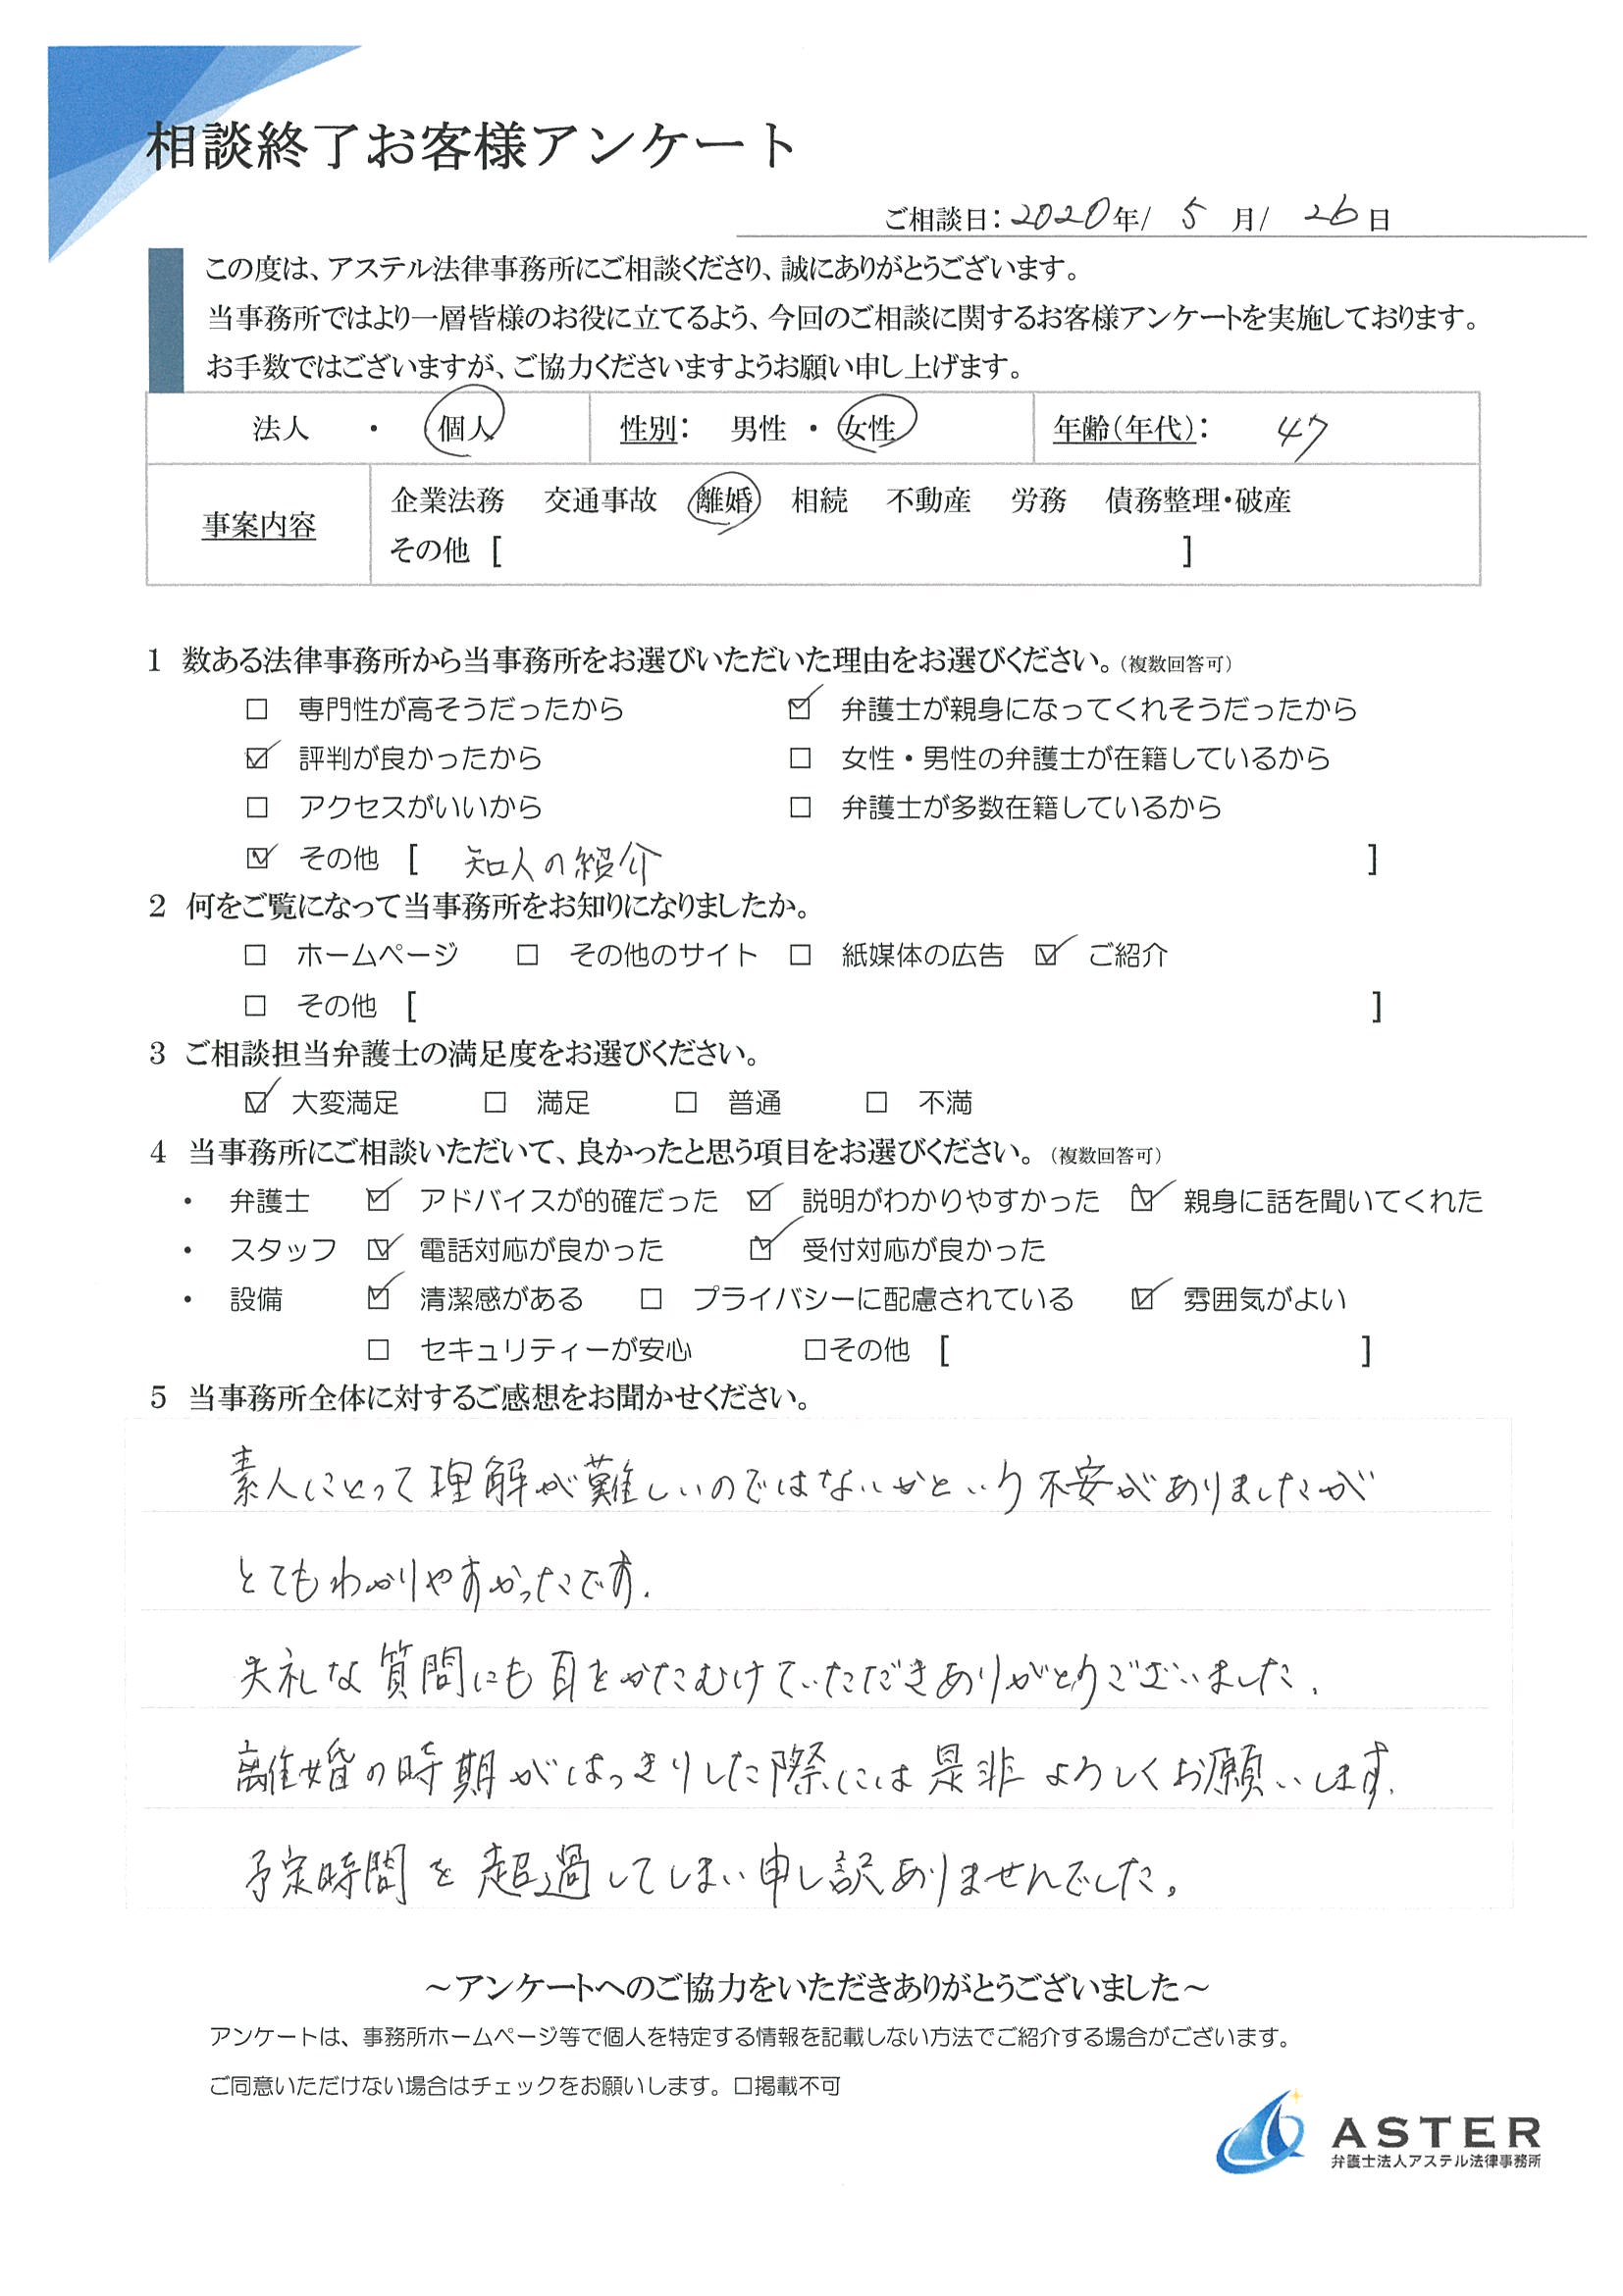 相談終了お客様アンケート
ご相談日：2020年/ 5 月/ 26日
この度は、アステル法律事務所にご相談くださり、誠にありがとうございます。
当事務所ではより一層皆様のお役に立てるよう、今回のご相談に関するお客様アンケートを実施しております。
お手数ではございますが、ご協力くださいますようお願い申し上げます。
法人 ・ 個人 性別： 男性 ・ 女性 年齢（年代）： 47
事案内容 企業法務 交通事故 離婚 相続 不動産 労務 債務整理・破産
その他 [ ]
1 数ある法律事務所から当事務所をお選びいただいた理由をお選びください。（複数回答可）
□ 専門性が高そうだったから ☑ 弁護士が親身になってくれそうだったから
☑ 評判が良かったから □ 女性・男性の弁護士が在籍しているから
□ アクセスがいいから □ 弁護士が多数在籍しているから
☑ その他 [ 知人の紹介 ]
2 何をご覧になって当事務所をお知りになりましたか。
□ ホームページ □ その他のサイト □ 紙媒体の広告 ☑ ご紹介
□ その他 [ ]
3 ご相談担当弁護士の満足度をお選びください。
☑ 大変満足 □ 満足 □ 普通 □ 不満
4 当事務所にご相談いただいて、良かったと思う項目をお選びください。（複数回答可）
・ 弁護士 ☑ アドバイスが的確だった ☑ 説明がわかりやすかった ☑ 親身に話を聞いてくれた
・ スタッフ ☑ 電話対応が良かった ☑ 受付対応が良かった
・ 設備 ☑ 清潔感がある □ プライバシーに配慮されている ☑ 雰囲気がよい
□ セキュリティーが安心 □その他 [ ]
5 当事務所全体に対するご感想をお聞かせください。
素人にとって理解が難しいのではないかという不安がありましたが
とてもわかりやすかったです.
失礼な質問にも耳をかたむけていただきありがとうございました.
離婚の時期がはっきりした際には是非よろしくお願いします.
予定時間を超過してしまい申し訳ありませんでした。
～アンケートへのご協力をいただきありがとうございました～
アンケートは、事務所ホームページ等で個人を特定する情報を記載しない方法でご紹介する場合がございます。
ご同意いただけない場合はチェックをお願いします。□掲載不可
ASTER
弁護士法人アステル法律事務所